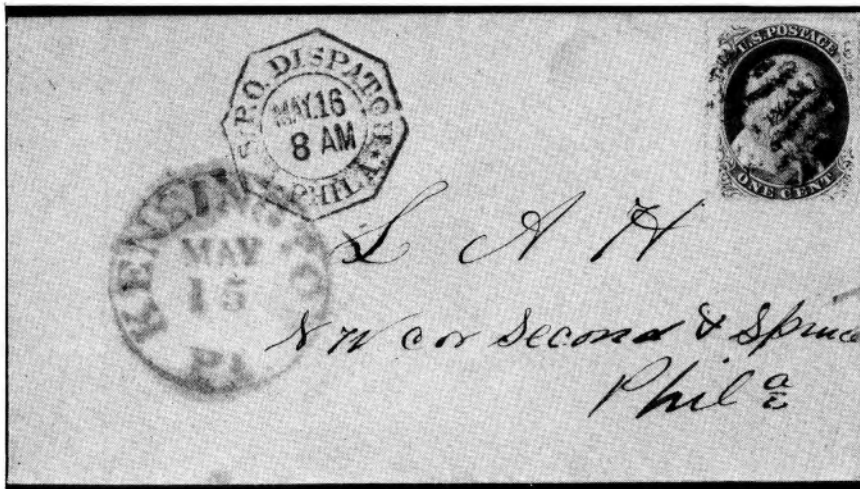 U.S. POSTAGE
ONE CENT
U.S. P.O. DISPATCH
MAY. 16
8 AM
PHILA
KENSINGTON
MAY
15
PA
L A H
N W cor Second & Spruce
Phil a